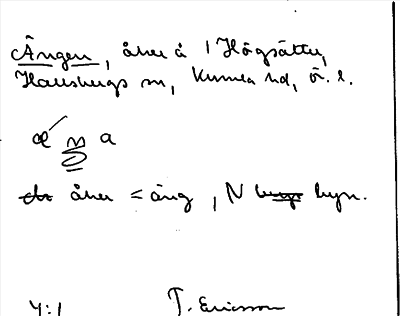 Ängen, åker å 1 Högsätter,
Hallsbergs sn, Kumla hd, ö. l.
æ´ n a
åker = äng, N byn.
T. Ericsson